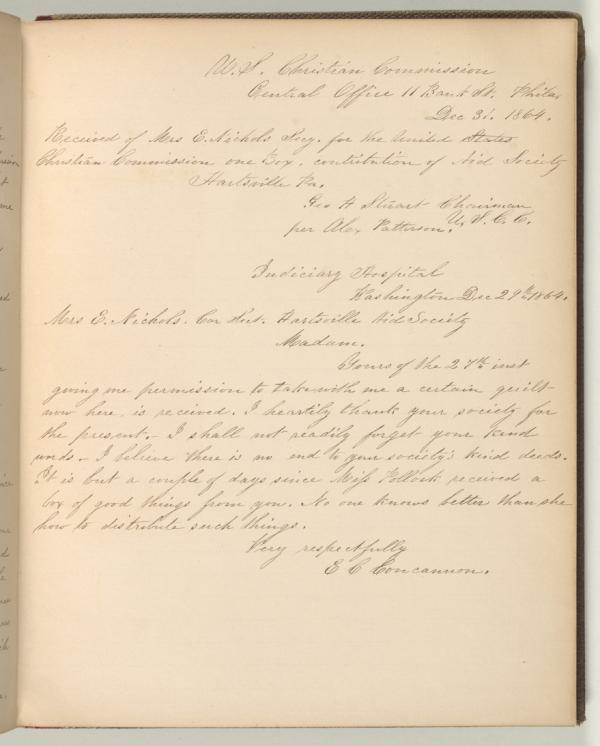 U.S. Christian Commission
Central Office 11 Bank St. Phila.
Dec 31. 1864.
Received of Mrs E. Nichols Secy. for the United States
Christian Commission one box, contribution of Aid Society
Hartsville Pa.
Geo H Stuart Chairman
per Alex Patterson. U.S.C.C.
Judiciary Hospital
Washington Dec 29th 1864.
Mrs E. Nichols. Cor Sect. Hartsville Aid Society
Madam.
Yours of the 27th inst
giving me permission to take with me a certain quilt
now here, is received. I heartily thank your society for
the present. - I shall not readily forget your kind
words. - I believe there is no end to your society's kind deeds.
It is but a couple of days since Miss Pollock received a
box of good things from you. No one knows better than she
how to distribute such things.
Very respectfully
E C Concannon.